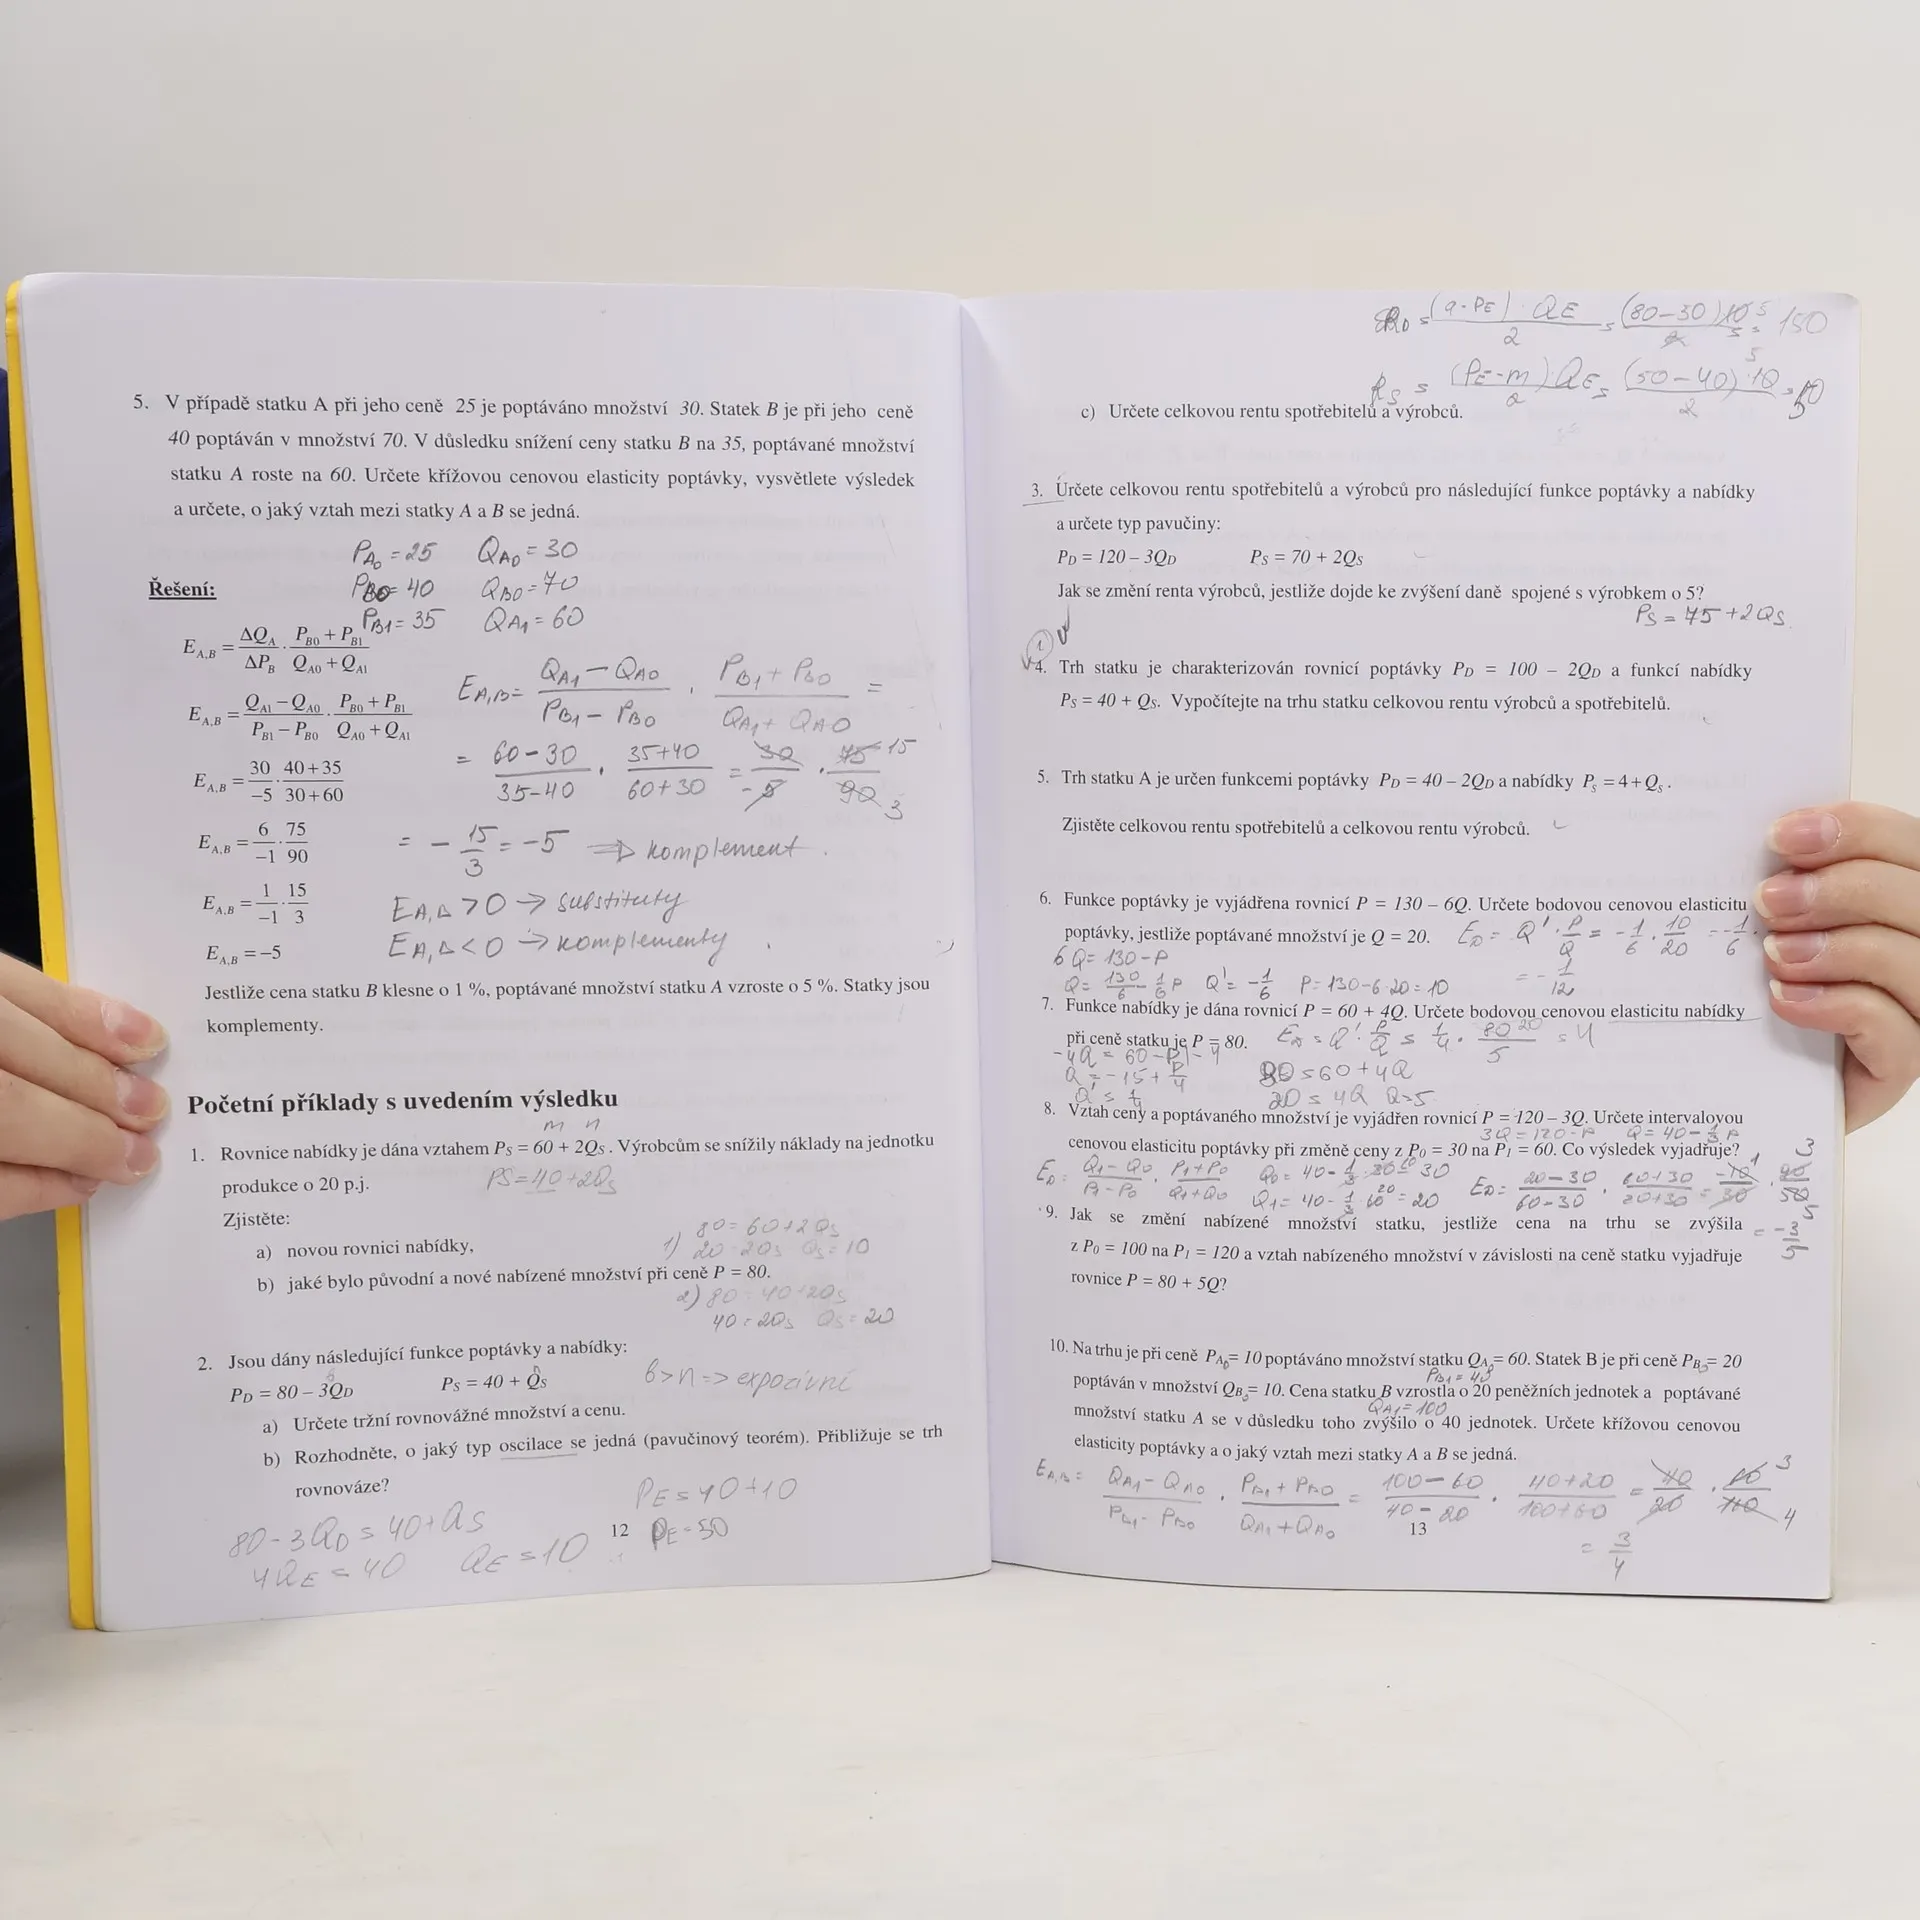 5. V případě statku A při jeho ceně 25 je poptáváno množství 30. Statek B je při jeho ceně
40 poptáván v množství 70. V důsledku snížení ceny statku B na 35, poptávané množství
statku A roste na 60. Určete křížovou cenovou elasticity poptávky, vysvětlete výsledek
a určete, o jaký vztah mezi statky A a B se jedná.
P_A0 = 25 Q_A0 = 30
Řešení: P_B0 = 40 Q_B0 = 70
P_B1 = 35 Q_A1 = 60
E_A,B = ΔQ_A/ΔP_B · (P_B0 + P_B1)/(Q_A0 + Q_A1)
E_A,B = (Q_A1 − Q_A0)/(P_B1 − P_B0) · (P_B0 + P_B1)/(Q_A0 + Q_A1)
E_A,B = 30/−5 · (40+35)/(30+60)
E_A,B = 6/−1 · 75/90
E_A,B = 1/−1 · 15/3
E_A,B = −5
E_A,B = (Q_A1 − Q_A0)/(P_B1 − P_B0) · (P_B1 + P_B0)/(Q_A1 + Q_A0) =
= (60−30)/(35−40) · (35+40)/(60+30) = 30/−5 · 75/90 15 3
= − 15/3 = −5 ⇒ komplement
E_A,B > 0 → substituty
E_A,B < 0 → komplementy
Jestliže cena statku B klesne o 1 %, poptávané množství statku A vzroste o 5 %. Statky jsou
komplementy.
Početní příklady s uvedením výsledku
m n
1. Rovnice nabídky je dána vztahem P_S = 60 + 2Q_S . Výrobcům se snížily náklady na jednotku
produkce o 20 p.j. PS = 40 + 2Q_S
Zjistěte:
a) novou rovnici nabídky,
b) jaké bylo původní a nové nabízené množství při ceně P = 80.
1) 80 = 60 + 2Q_S
20 = 2Q_S Q_S = 10
2) 80 = 40 + 2Q_S
40 = 2Q_S Q_S = 20
2. Jsou dány následující funkce poptávky a nabídky:
P_D = 80 – 3Q_D P_S = 40 + Q_S b > n =>
a) Určete tržní rovnovážné množství a cenu.
b) Rozhodněte, o jaký typ oscilace se jedná (pavučinový teorém). Přibližuje se trh
rovnováze?
80 − 3Q_D = 40 + Q_S
4Q_E = 40 Q_E = 10
P_E = 40 + 10
P_E = 50
12
R_D = (a − P_E) · Q_E / 2 = (80 − 30) 10 / 2 = 150
R_S = (P_E − m) Q_E / 2 = (50 − 40) · 10 / 2 = 50
c) Určete celkovou rentu spotřebitelů a výrobců.
3. Určete celkovou rentu spotřebitelů a výrobců pro následující funkce poptávky a nabídky
a určete typ pavučiny:
P_D = 120 – 3Q_D P_S = 70 + 2Q_S
Jak se změní renta výrobců, jestliže dojde ke zvýšení daně spojené s výrobkem o 5?
P_S = 75 + 2Q_S
4. Trh statku je charakterizován rovnicí poptávky P_D = 100 – 2Q_D a funkcí nabídky
P_S = 40 + Q_S. Vypočítejte na trhu statku celkovou rentu výrobců a spotřebitelů.
5. Trh statku A je určen funkcemi poptávky P_D = 40 – 2Q_D a nabídky P_s = 4 + Q_s .
Zjistěte celkovou rentu spotřebitelů a celkovou rentu výrobců.
6. Funkce poptávky je vyjádřena rovnicí P = 130 – 6Q. Určete bodovou cenovou elasticitu
poptávky, jestliže poptávané množství je Q = 20. E_D = Q' · P/Q = − 1/6 · 10/20 = − 1/6 ·
6Q = 130 − P
Q = 130/6 − 1/6 P Q' = − 1/6 P = 130 − 6·20 = 10 = − 1/12
7. Funkce nabídky je dána rovnicí P = 60 + 4Q. Určete bodovou cenovou elasticitu nabídky
při ceně statku je P = 80. = Q' · P/Q = 1/4 · 80/5 20 = 4
−4Q = 60 − P | −4
Q = −15 + P/4 80 = 60 + 4Q
Q' = 1/4 20 = 4Q Q = 5
8. Vztah ceny a poptávaného množství je vyjádřen rovnicí P = 120 – 3Q. Určete intervalovou
3Q = 120 − P Q = 40 − 1/3 P
cenovou elasticitu poptávky při změně ceny z P0 = 30 na P1 = 60. Co výsledek vyjadřuje?
E_D = (Q1 − Q0)/(P1 − P0) · (P1 + P0)/(Q1 + Q0) Q0 = 40 − 1/3 · 30 = 30
Q1 = 40 − 1/3 60 20 = 20 E_D = (20 − 30)/(60 − 30) · (60 + 30)/(20 + 30) = −10/30 · 90/50
= − 3/5
9. Jak se změní nabízené množství statku, jestliže cena na trhu se zvýšila
z P0 = 100 na P1 = 120 a vztah nabízeného množství v závislosti na ceně statku vyjadřuje
rovnice P = 80 + 5Q?
10. Na trhu je při ceně P_A0 = 10 poptáváno množství statku Q_A0 = 60. Statek B je při ceně P_B0 = 20
P_B1 = 40
poptáván v množství Q_B0 = 10. Cena statku B vzrostla o 20 peněžních jednotek a poptávané
Q_A1 = 100
množství statku A se v důsledku toho zvýšilo o 40 jednotek. Určete křížovou cenovou
elasticity poptávky a o jaký vztah mezi statky A a B se jedná.
E_A,B = (Q_A1 − Q_A0)/(P_B1 − P_B0) · (P_B1 + P_B0)/(Q_A1 + Q_A0) = (100 − 60)/(40 − 20) · (40 + 20)/(100 + 60) = 40/20 · 3 4
= 3/4
13